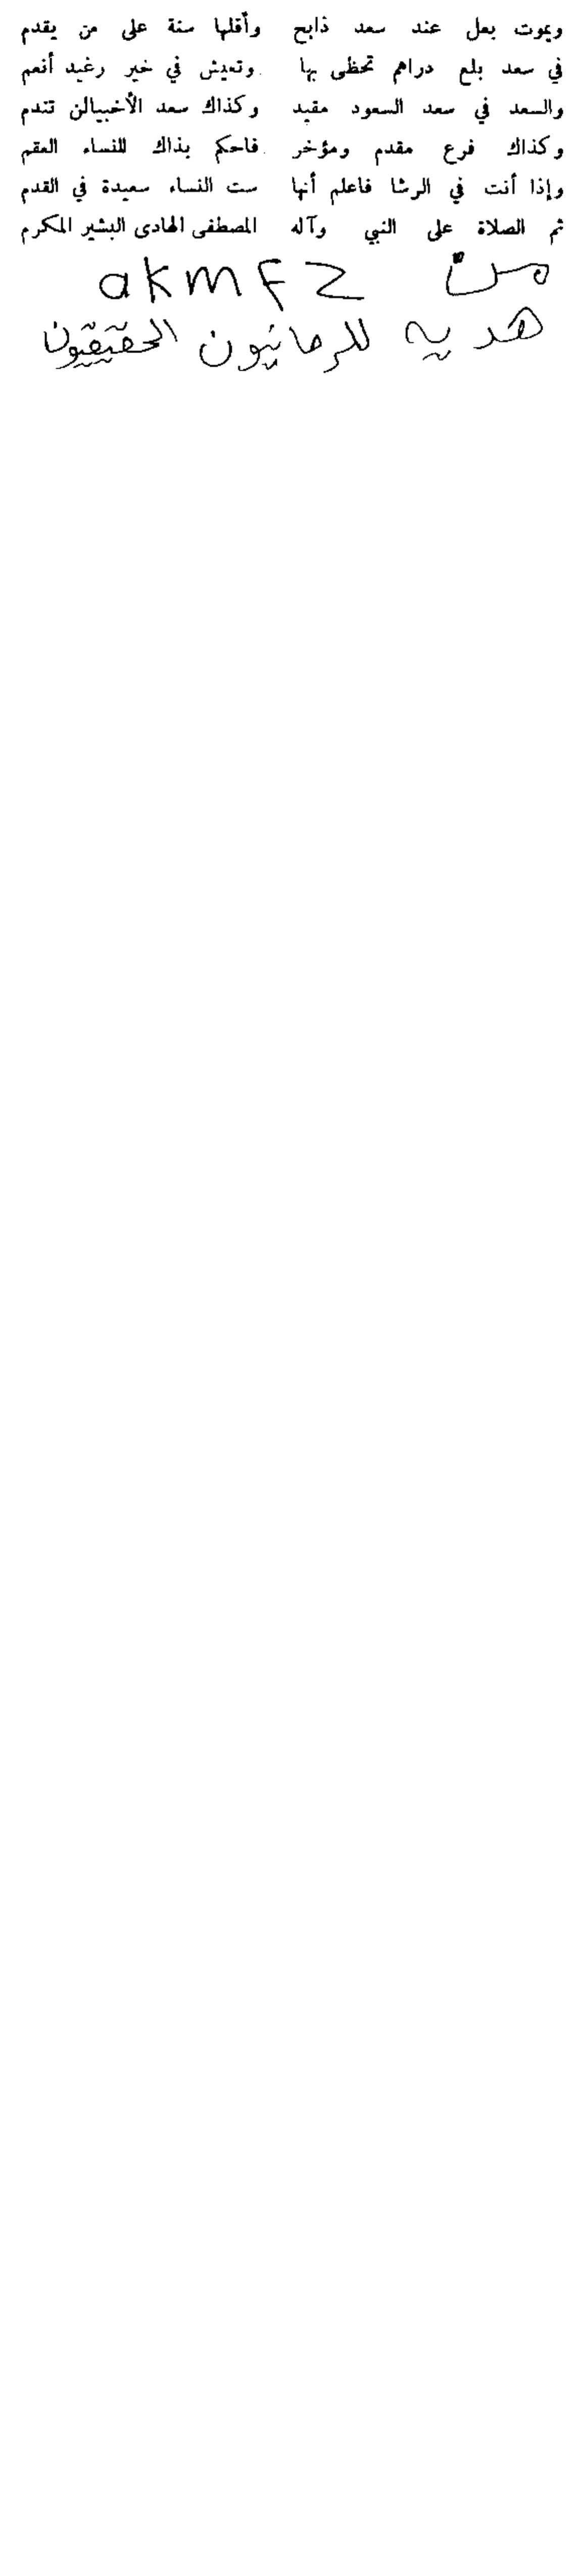 ويموت بعل عند سعد ذابح وأقلها سنة على من يقدم
في سعد بلع دراهم تحظى بها وتعيش في خير رغيد أنعم
والسعد في سعد السعود مقيد وكذاك سعد الأخبيالن تندم
وكذاك فرع مقدم ومؤخر فاحكم بذاك للنساء العقم
وإذا أنت في الرشا فاعلم أنها ست النساء سعيدة في القدم
ثم الصلاة على النبي وآله المصطفى الهادى البشير المكرم
من akmfz
هديه للرحانيون الحقيقيون